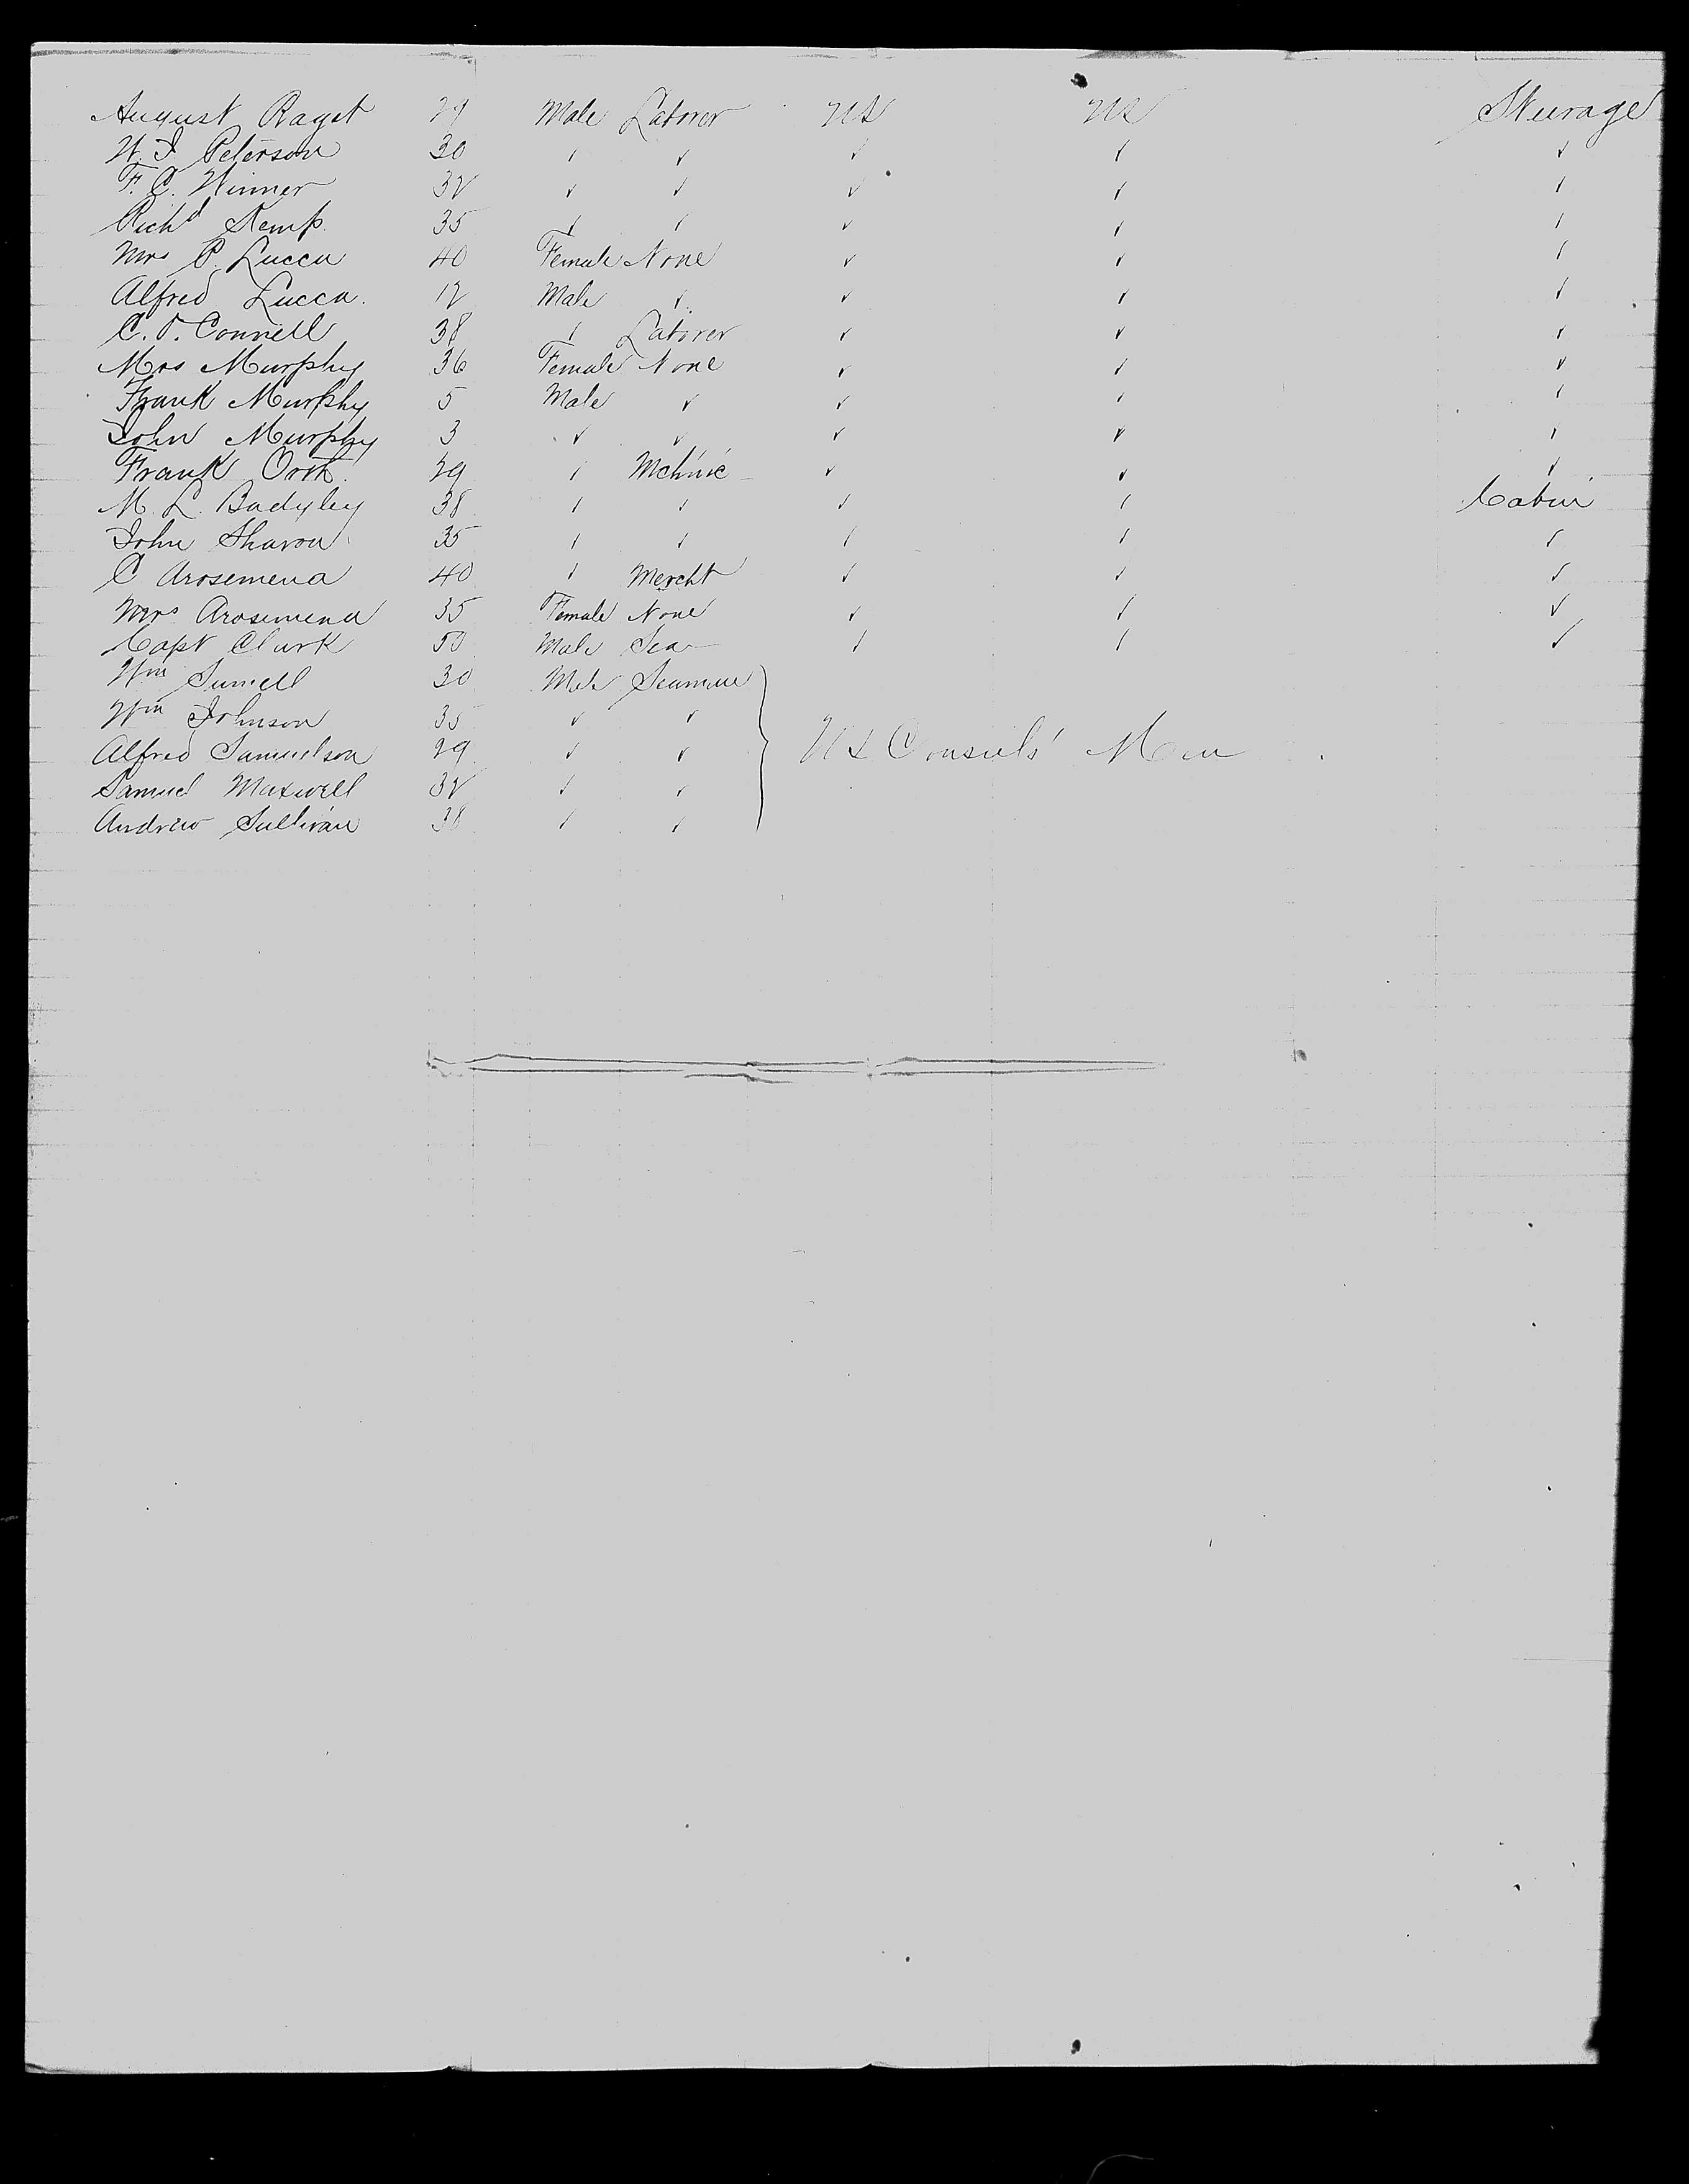 August Ragst 29 Male Laborer US US Steerage
W. J. Peterson 30 ✓ ✓ ✓ ✓ ✓
F. C. Winner 32 ✓ ✓ ✓ ✓ ✓
Richd Kemp 35 ✓ ✓ ✓ ✓ ✓
Mrs P. Lucca 40 Female None ✓ ✓ ✓
Alfred Lucca. 12 Male ✓ ✓ ✓ ✓
C. O. Connell 38 ✓ Laborer ✓ ✓ ✓
Mrs Murphy 36 Female None ✓ ✓ ✓
Frank Murphy 5 Male ✓ ✓ ✓ ✓
John Murphy 3 ✓ ✓ ✓ ✓ ✓
Frank Orth. 29 ✓ Mchnic ✓ ✓ ✓
M. L. Badgley 38 ✓ ✓ ✓ ✓ Cabin
John Sharon 35 ✓ ✓ ✓ ✓ ✓
C Arosemena 40 ✓ Mercht ✓ ✓ ✓
Mrs Arosemena 35 Female None ✓ ✓ ✓
Capt Clark 50 Male Sea ✓ ✓ ✓
Wm 30 Male Seaman
Wm Johnson 35 ✓ ✓
Alfred Samuelson 29 ✓ ✓ US Consuls' Men
Samuel Maxwell 32 ✓ ✓
Andrew Sullivan 38 ✓ ✓